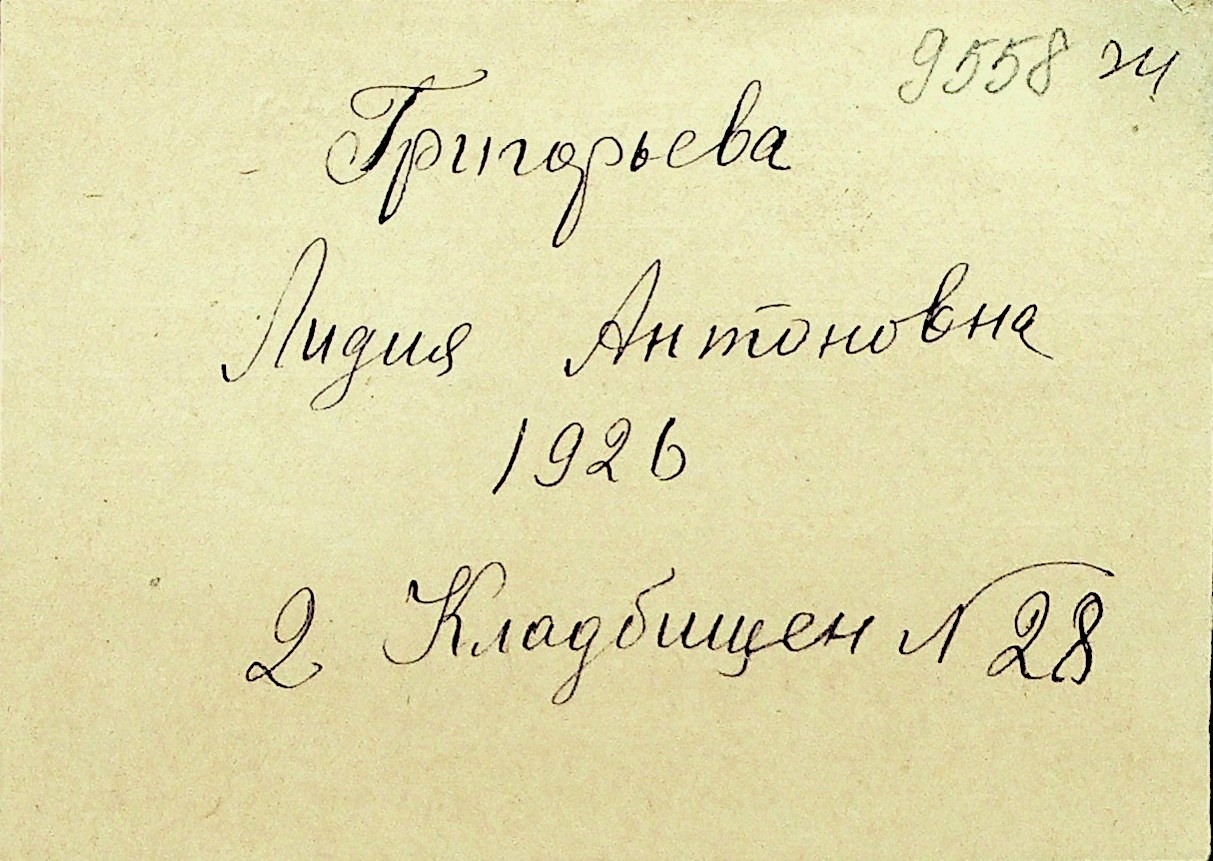 9558 ж
Григорьева
Лидия Антоновна
1926
2 Кладбищен № 28